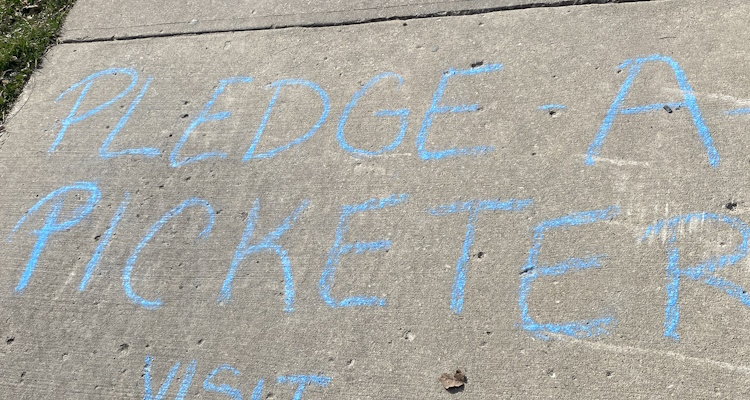 PLEDGE-A-
PICKETER
VISIT